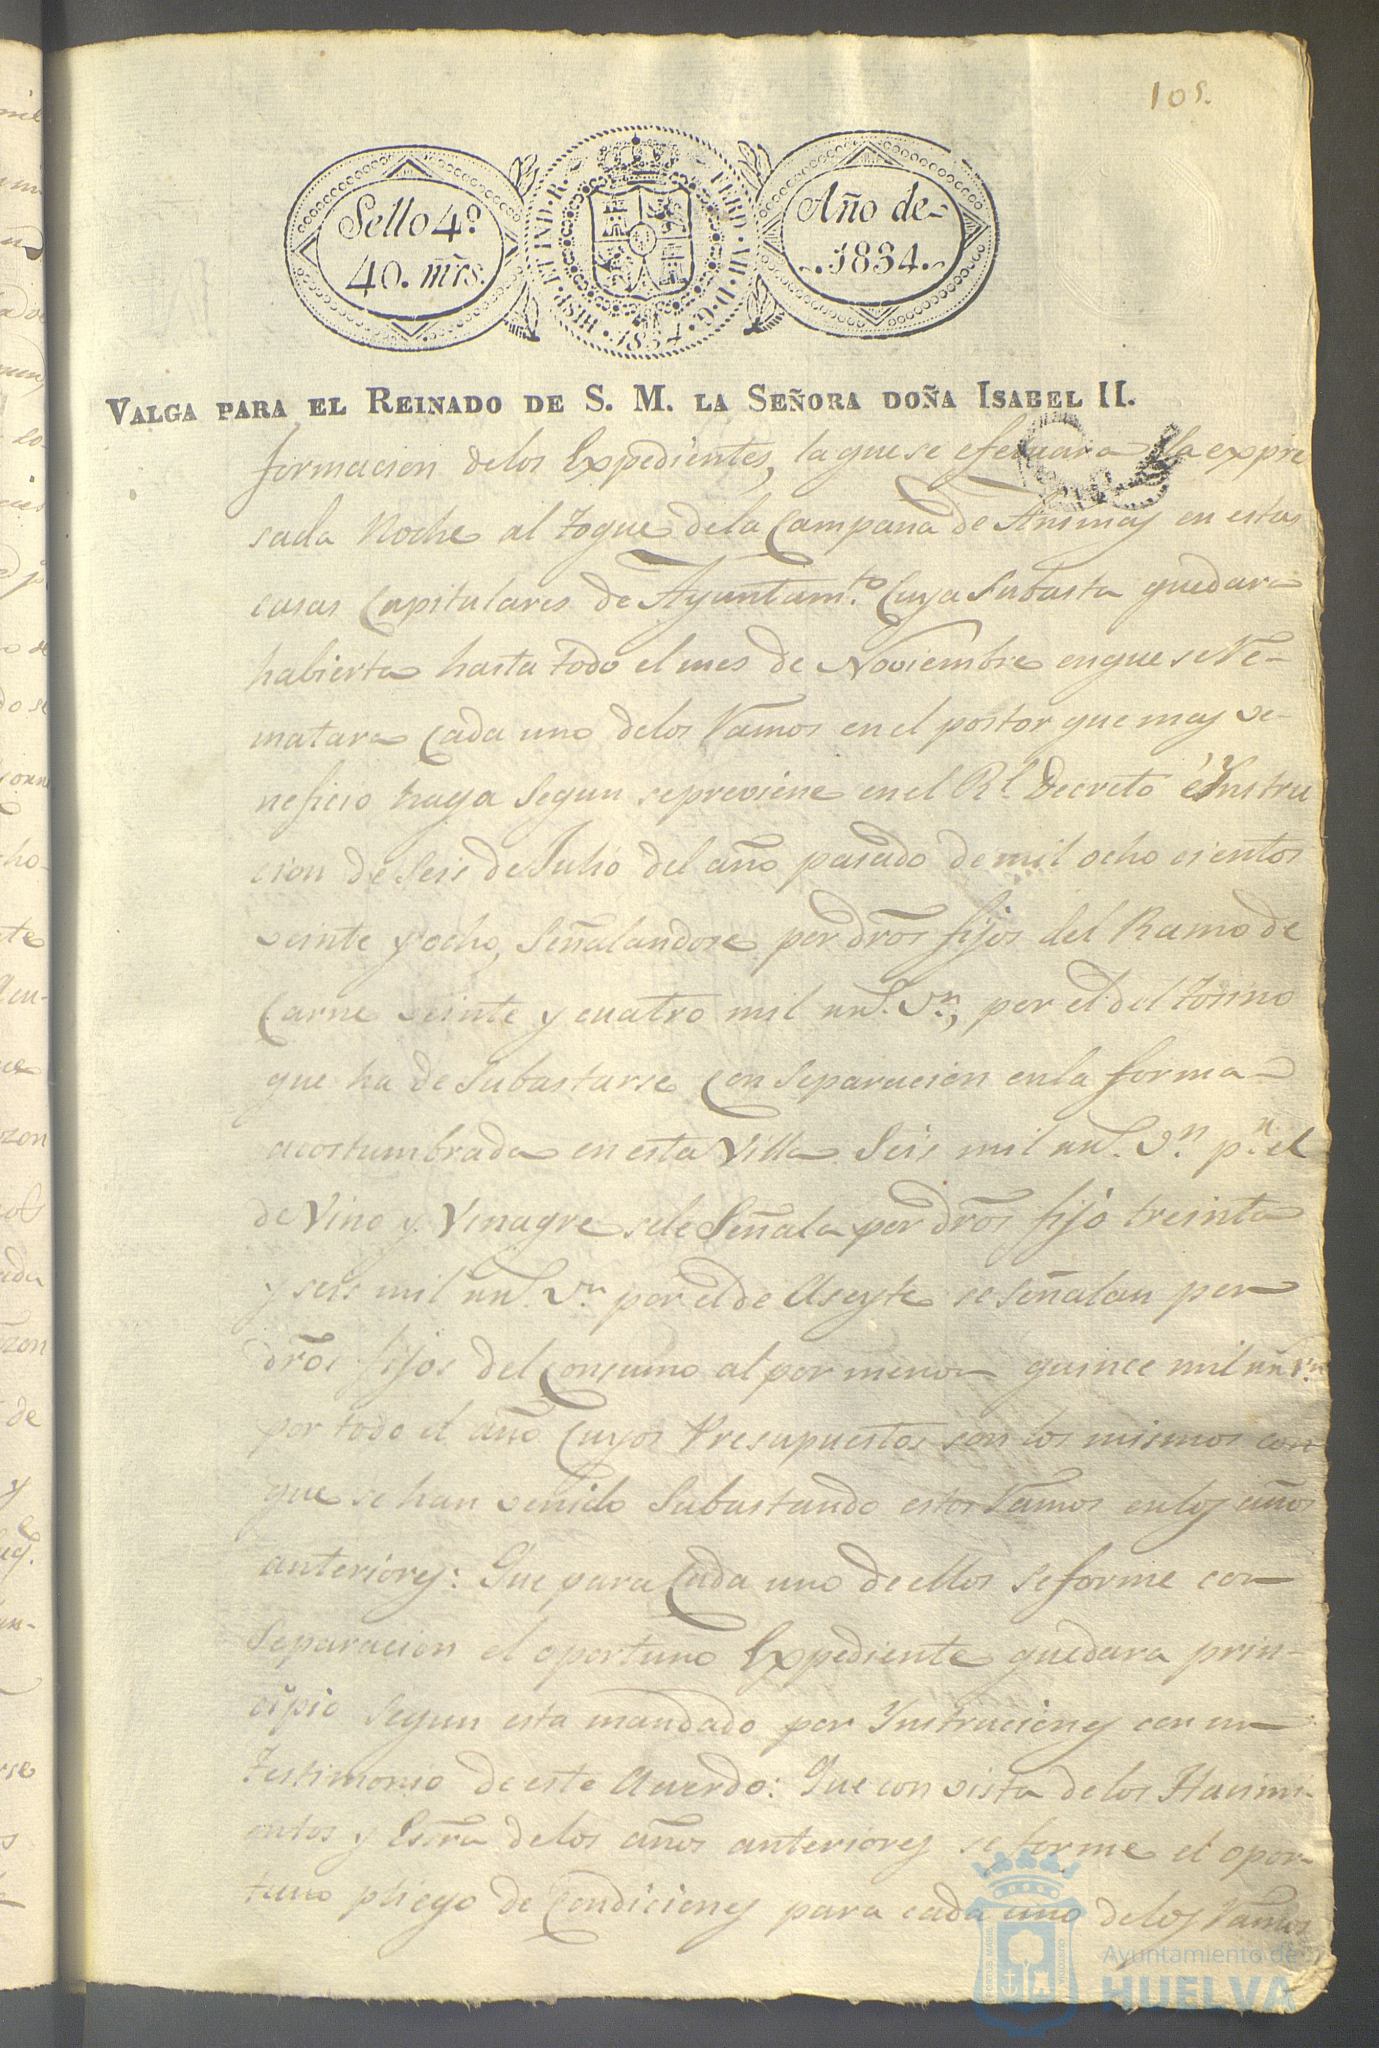 105.
Sello 4º
40. mrs.
HISP. ET IND. R. FERD. VII. D. G. 1834
Año de
1834.
VALGA PARA EL REINADO DE S. M. LA SEÑORA DOÑA ISABEL II.
formacion delos Expedientes, laquese efectuara la expre
sada Noche al toque dela Campana de Animas en estas
casas Capitulares de Ayuntamto. Cuya Subasta quedara
habierta hasta todo el mes de Noviembre enque se Re-
matara Cada uno delos Ramos en el postor que mas ve-
neficio haga Segun sepreviene en el Rl. Decreto é Instru
cion de Seis de Julio del año pasado de mil ocho cientos
veinte y ocho, Señalandose por dros fijos del Ramo de
Carne veinte y cuatro mil rrs. vn., por el del tosino
que ha de Subastarse Con Separacion enla forma
acostumbrada en esta Villa Seis mil rrs. vn. pr. el
de Vino y Vinagre sele Señala por dros fijo treinta
y seis mil rrs. vn. por el de Aseyte se señalan por
dros fijos del Consumo al por menor quince mil rrs vn
por todo el año Cuyos Presupuestos son los mismos con
que se han venido Subastando estos Ramos enlos años
anteriores: Que para Cada uno de ellos se forme con
Separacion el oportuno Expediente quedara prin-
cipio Segun esta mandado por Ynstruciones con un
testimonio de este Acuerdo: Que con vista delos Hacimi-
entos y Esra delos años anteriores se forme el opor-
tuno pliego de Condiciones para cada uno delos Ramos
Ayuntamiento de
HUELVA